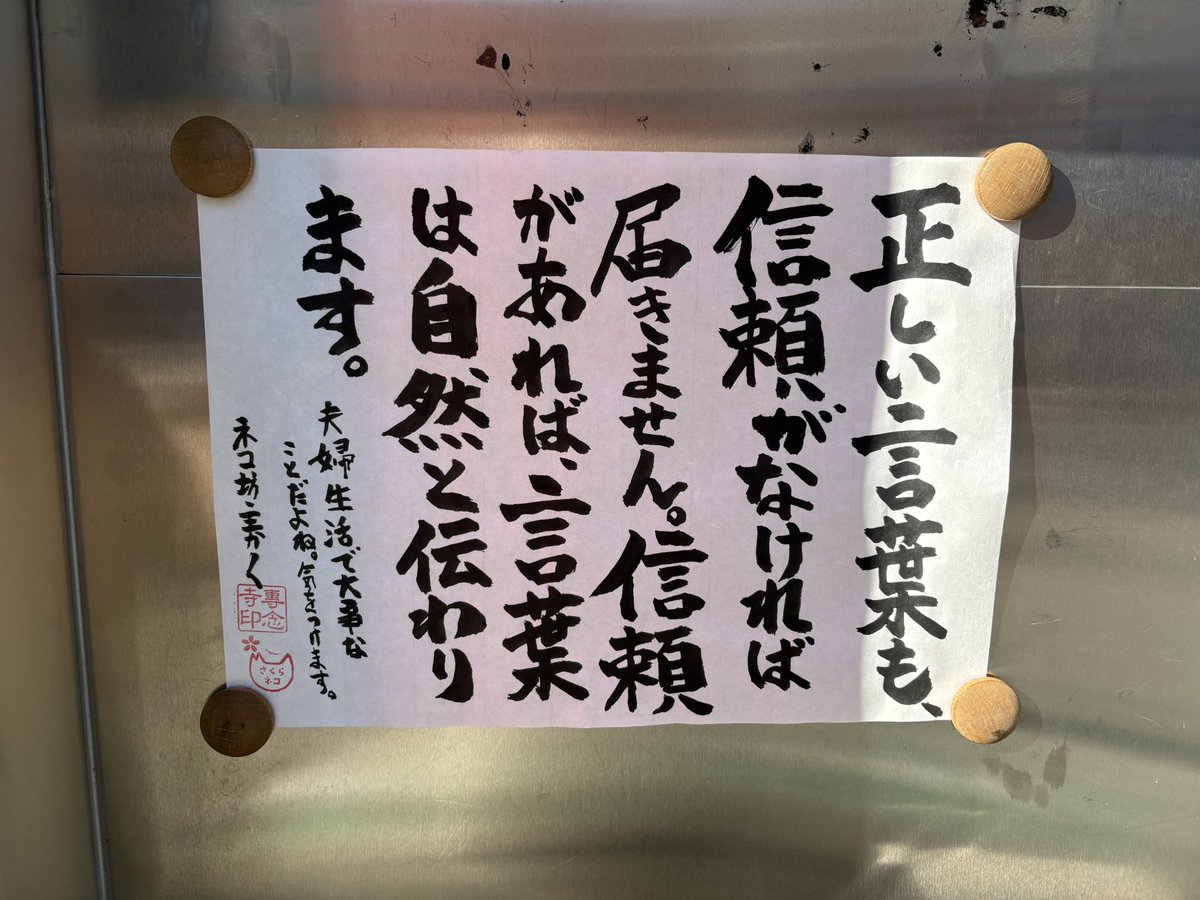 正しい言葉も、
信頼がなければ
届きません。信頼
があれば、言葉
は自然と伝わり
ます。
夫婦生活で大事な
ことだよね。気をつけます。
ネコ坊主かく
専念
寺印
さくら
ネコ